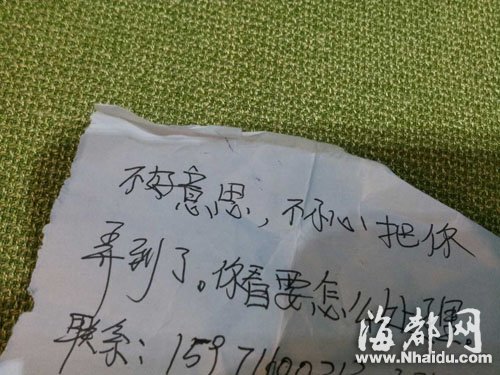 不好意思，不小心把你
弄到了。你看要怎么处理。
联系：
海都网
www.Nhaidu.com